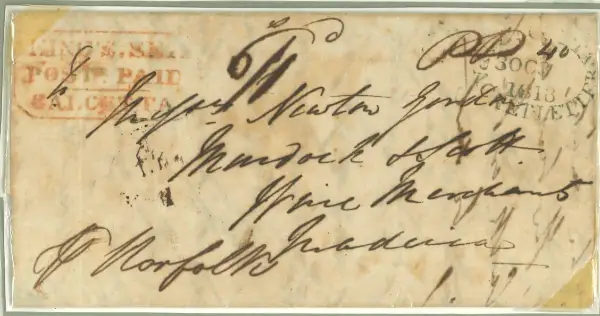 POST PAID
CALCUTTA
PP 40
OC
1813
To Messrs Newton Gordon
Murdock & Scott
Wine Merchants
Madeira
P Norfolk